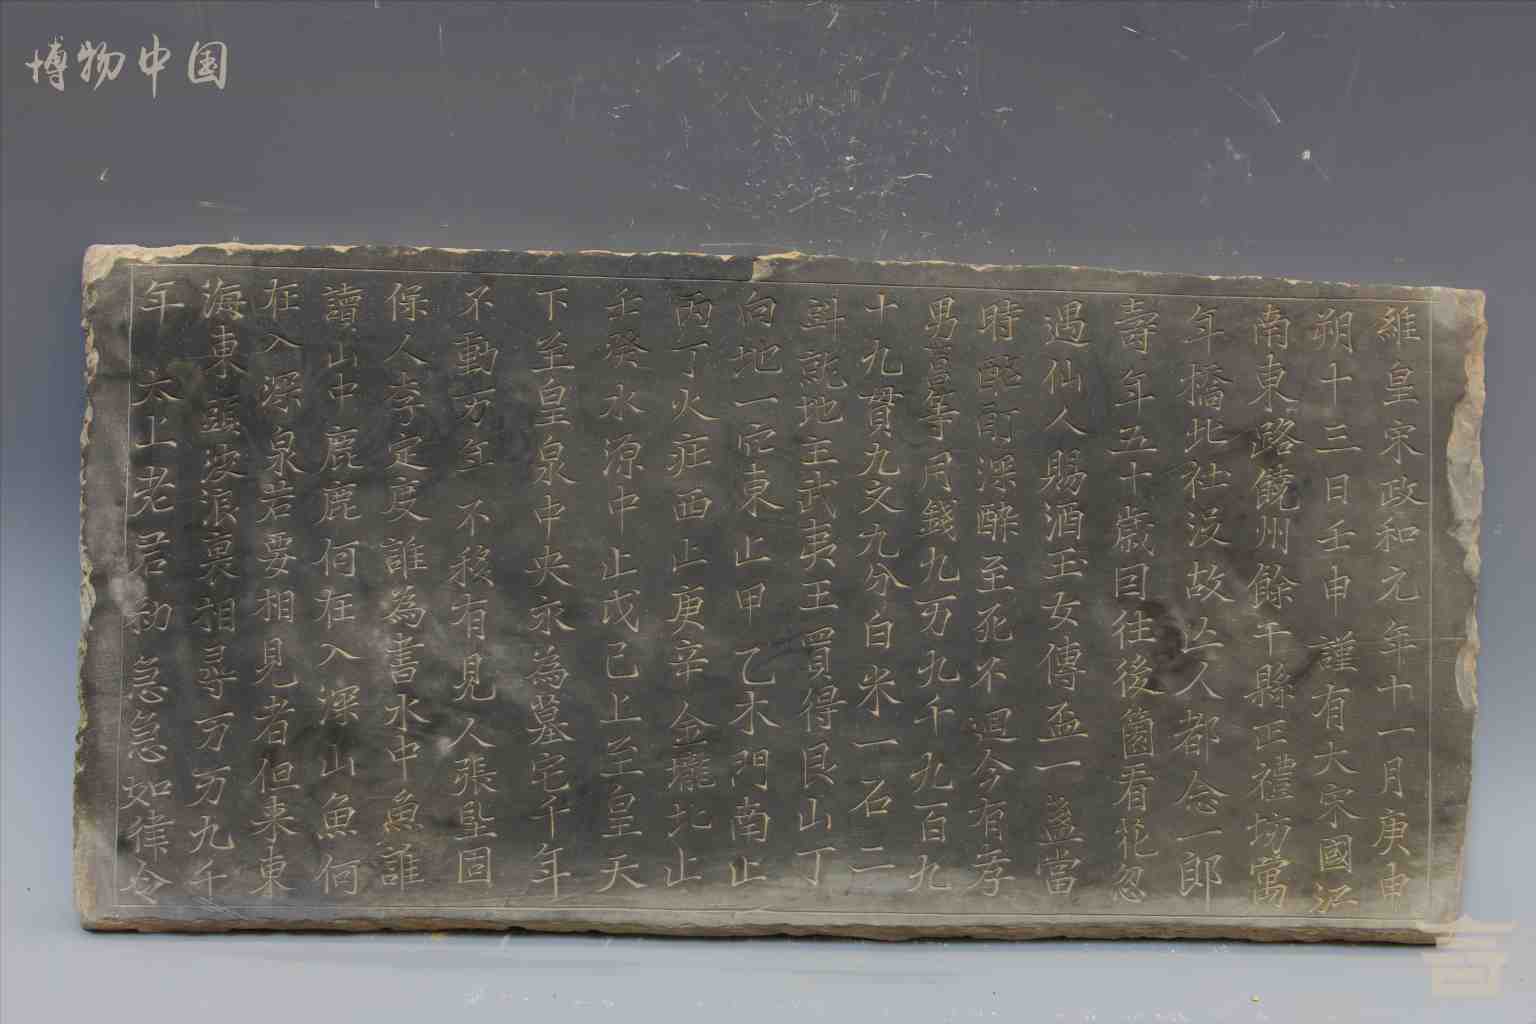 博物中国
維皇宋政和元年十一月庚申
朔十三日壬申謹有大宋國江
南東路饒州餘干縣正禮坊寓
年橋北社沒故亡人都念一郎
壽年五十歲因往後園看花忽
遇仙人賜酒玉女傳盃一盞當
時酩酊深醉至死不迴今有孝
男 等用錢九万九千九百九
十九貫九文九分白米一石二
斗就地主武夷王買得艮山丁
向地一穴東止甲乙木門南止
丙丁火 西止庚辛金壠北止
壬癸水源中止戊己上至皇天
下至皇泉中央永為墓宅千年
不動万年不移有見人張堅固
保人李定度誰為書水中魚誰
讀山中鹿鹿何在入深山魚何
在入深泉若要相見者但来東
海東頭波浪裏相尋万万九千
年太上老君勑急急如律令